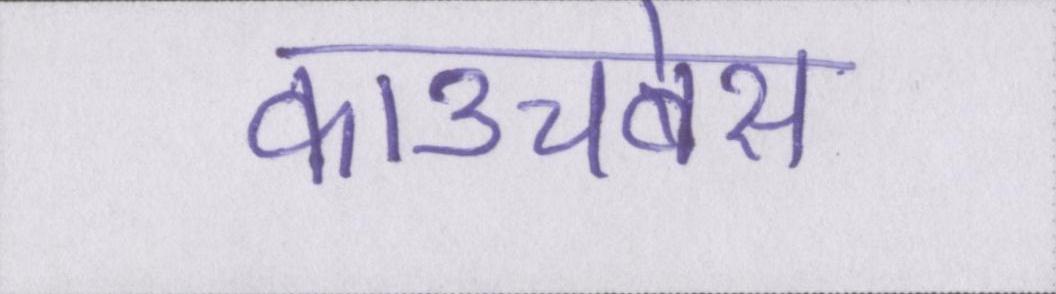 काउचबेस